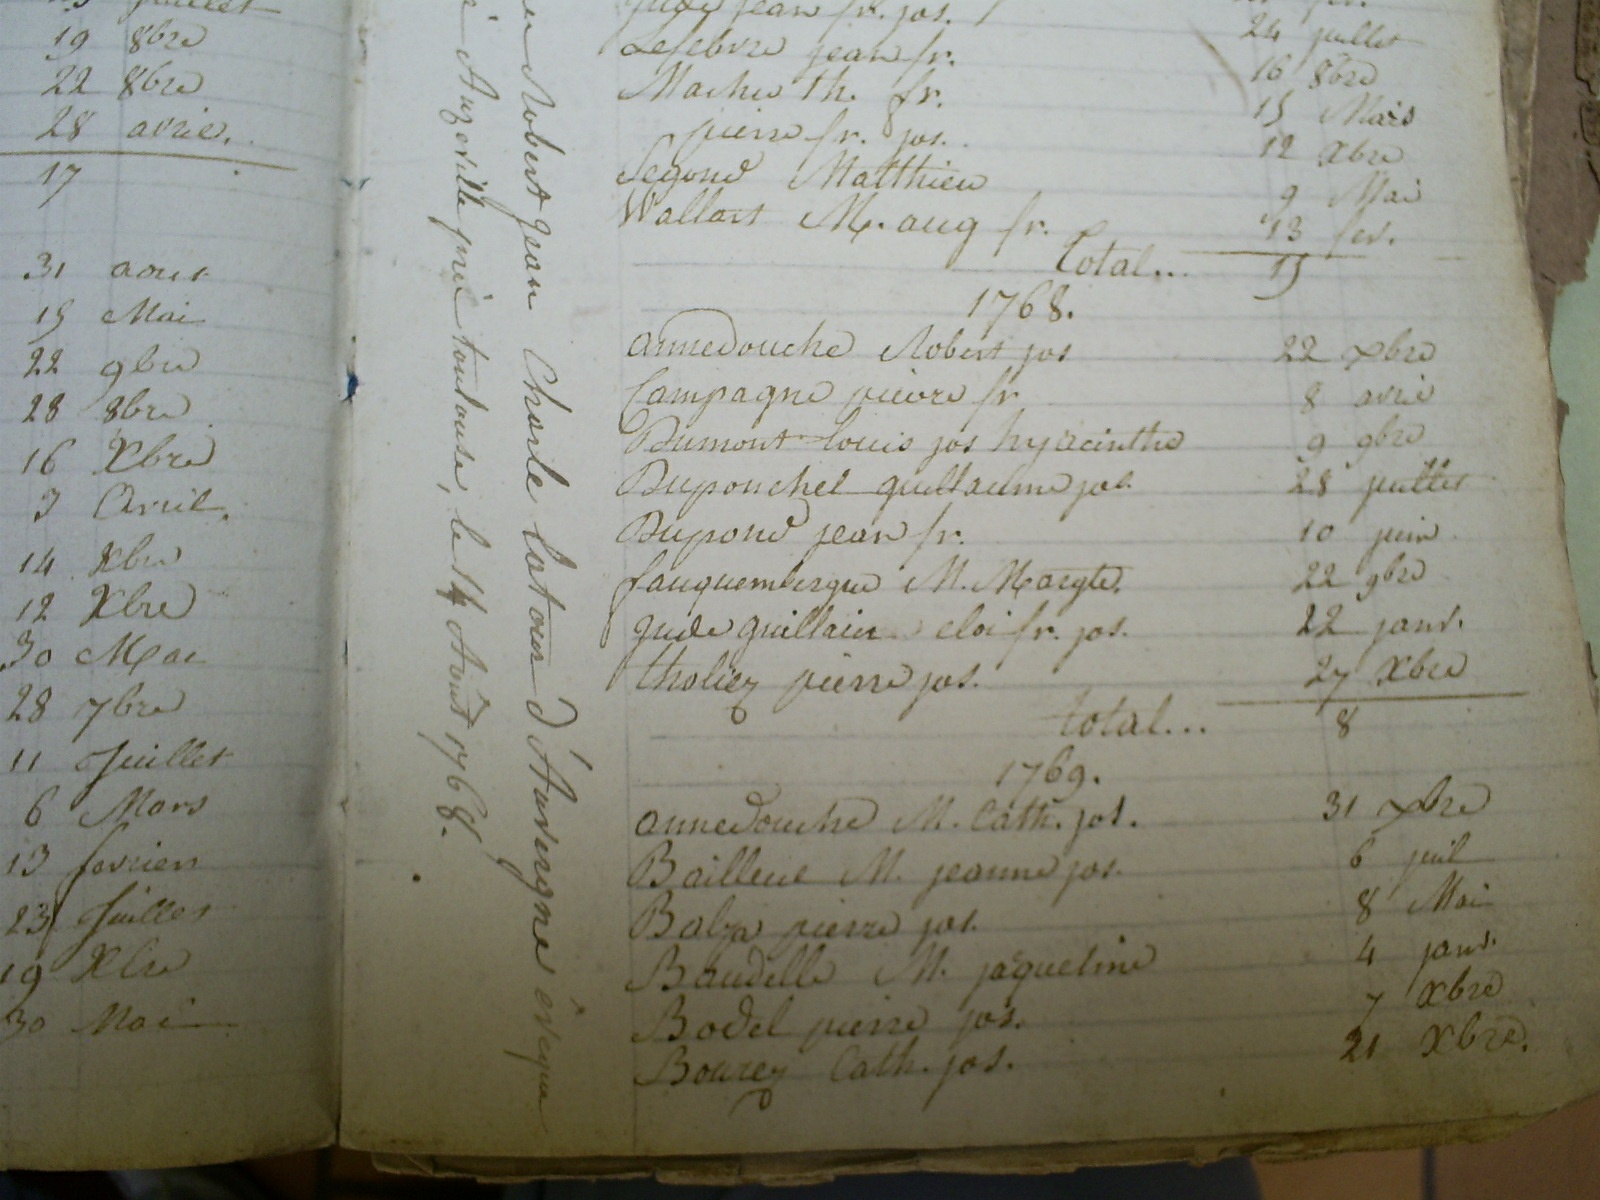 juillet
19 8bre
22 8bre
28 avril.
17
31 aout
15 Mai
22 9bre
28 8bre
16 Xbre
3 Avril.
14 Xbre
12 Xbre
30 Mai
28 7bre
11 Juillet
6 Mars
13 fevrier
23 Juillet
19 Xbre
30 Mai
Robert jean Charle latour d'Auvergne évêque
Auzeville près toulouse, le 14 Août 1768.
jude jean fr. jos.
Lefebvre jean fr. 24 juillet
Mathieu th. fr. 16 8bre
pierre fr. jos. 15 Mars
Segond Matthieu 12 Xbre
Wallart M. aug fr. 9 Mai
13 fev.
total... 15
1768.
annedouche Robert jos 22 xbre
Campagne pierre fr 8 avril
Dumont louis jos hyacinthe 9 9bre
Duponchel guillaume jos. 28 juillet
Dupond jean fr. 10 juin
fauquembergue M. Margte. 22 9bre
jude guillain eloi fr. jos. 22 janv.
tholiez pierre jos. 27 Xbre
total... 8
1769.
annedouche M. Cath. jos. 31 xbre
Bailleue M. jeanne jos. 6 juil
Balza pierre jos. 8 Mai
Baudelle M. jaqueline 4 janv.
Bodel pierre jos. 7 Xbre
Bourey Cath. jos. 21 Xbre.